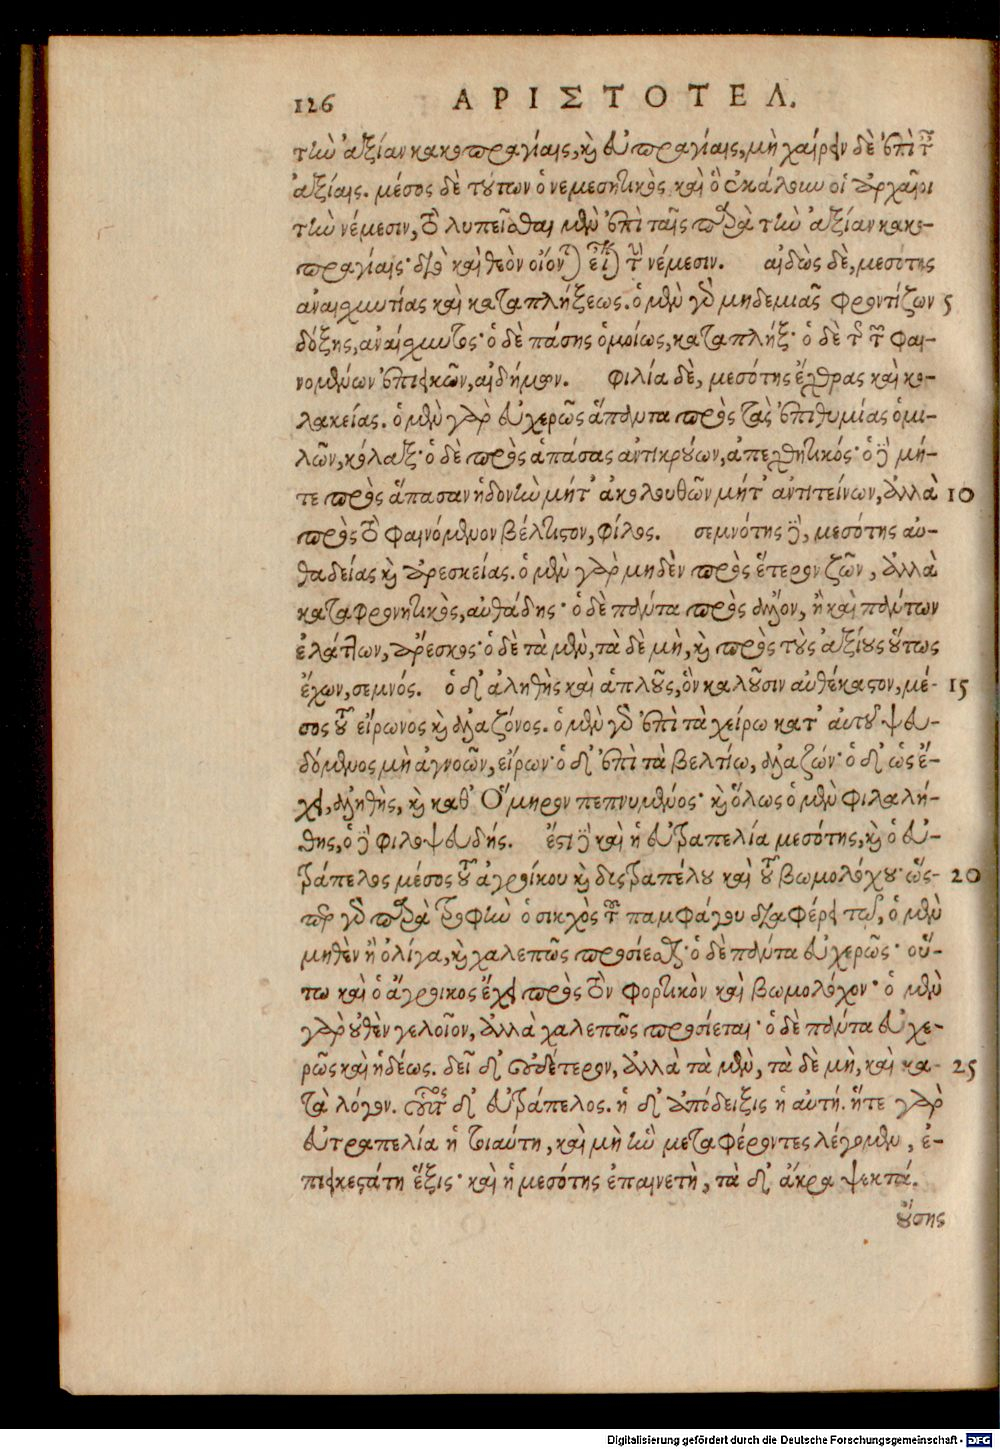 126 ΑΡΙΣΤΟΤΕΛ.
τὴν ἀξίαν κακοπραγίαις, καὶ εὐπραγίαις, μὴ χαίρειν δὲ ἐπὶ τῶν
ἀξίαις. μέσος δὲ τούτων ὁ νεμεσητικὸς καὶ ὃ ἐκάλουν οἱ ἀρχαῖοι
τὴν νέμεσιν, τὸ λυπεῖσθαι μὲν ἐπὶ ταῖς παρὰ τὴν ἀξίαν κακο-
πραγίαις· διὸ καὶ θεὸν οἴονται εἶναι τὴν νέμεσιν. αἰδὼς δὲ, μεσότης
ἀναισχυντίας καὶ καταπλήξεως. ὁ μὲν γὰρ μηδεμιᾶς φροντίζων 5
δόξης, ἀναίσχυντος· ὁ δὲ πάσης ὁμοίως, καταπλήξ· ὁ δὲ τῆς τῶν φαι-
νομένων ἐπιεικῶν, αἰδήμων. φιλία δὲ, μεσότης ἔχθρας καὶ κο-
λακείας. ὁ μὲν γὰρ εὐχερῶς ἅπαντα πρὸς τὰς ἐπιθυμίας ὁμι-
λῶν, κόλαξ· ὁ δὲ πρὸς ἁπάσας ἀντικρούων, ἀπεχθητικός· ὁ δὲ μή-
τε πρὸς ἅπασαν ἡδονὴν μήτ' ἀκολουθῶν μήτ' ἀντιτείνων, ἀλλὰ 10
πρὸς τὸ φαινόμενον βέλτιστον, φίλος. σεμνότης δὲ, μεσότης αὐ-
θαδείας καὶ ἀρεσκείας. ὁ μὲν γὰρ μηδὲν πρὸς ἕτερον ζῶν, ἀλλὰ
καταφρονητικὸς, αὐθάδης· ὁ δὲ πάντα πρὸς ἄλλον, ἢ καὶ πάντων
ἐλάττων, ἄρεσκος· ὁ δὲ τὰ μὲν, τὰ δὲ μὴ, καὶ πρὸς τοὺς ἀξίους οὕτως
ἔχων, σεμνός. ὁ δ' ἀληθὴς καὶ ἁπλοῦς, ὃν καλοῦσιν αὐθέκαστον, μέ- 15
σος τοῦ εἴρωνος καὶ ἀλαζόνος. ὁ μὲν γὰρ ἐπὶ τὰ χείρω κατ' αὐτοῦ ψευ-
δόμενος μὴ ἀγνοῶν, εἴρων· ὁ δ' ἐπὶ τὰ βελτίω, ἀλαζών· ὁ δ' ὡς ἔ-
χει, ἀληθὴς, καὶ καθ' Ὅμηρον πεπνυμένος· καὶ ὅλως ὁ μὲν φιλαλή-
θης, ὁ δὲ φιλοψευδής. ἔστι δὲ καὶ ἡ εὐτραπελία μεσότης, καὶ ὁ εὐ-
τράπελος μέσος τοῦ ἀγροίκου καὶ δυστραπέλου καὶ τοῦ βωμολόχου· ὥς- 20
περ γὰρ παρὰ τροφὴν ὁ σικχὸς τοῦ παμφάγου διαφέρει τῷ, ὁ μὲν
μηθὲν ἢ ὀλίγα, καὶ χαλεπῶς προσίεσθαι· ὁ δὲ πάντα εὐχερῶς· οὕ-
τω καὶ ὁ ἄγροικος ἔχει πρὸς τὸν φορτικὸν καὶ βωμολόχον· ὁ μὲν
γὰρ οὐθὲν γελοῖον, ἀλλὰ χαλεπῶς προσίεται· ὁ δὲ πάντα εὐχε-
ρῶς καὶ ἡδέως. δεῖ δ' οὐδέτερον, ἀλλὰ τὰ μὲν, τὰ δὲ μὴ, καὶ κα- 25
τὰ λόγον. οὗτος δ' εὐτράπελος. ἡ δ' ἀπόδειξις ἡ αὐτή. ἥτε γὰρ
εὐτραπελία ἡ τοιαύτη, καὶ μὴ ἣν μεταφέροντες λέγομεν, ἐ-
πιεικεστάτη ἕξις· καὶ ἡ μεσότης ἐπαινετὴ, τὰ δ' ἄκρα ψεκτά.
οὔσης
Digitalisierung gefördert durch die Deutsche Forschungsgemeinschaft - DFG